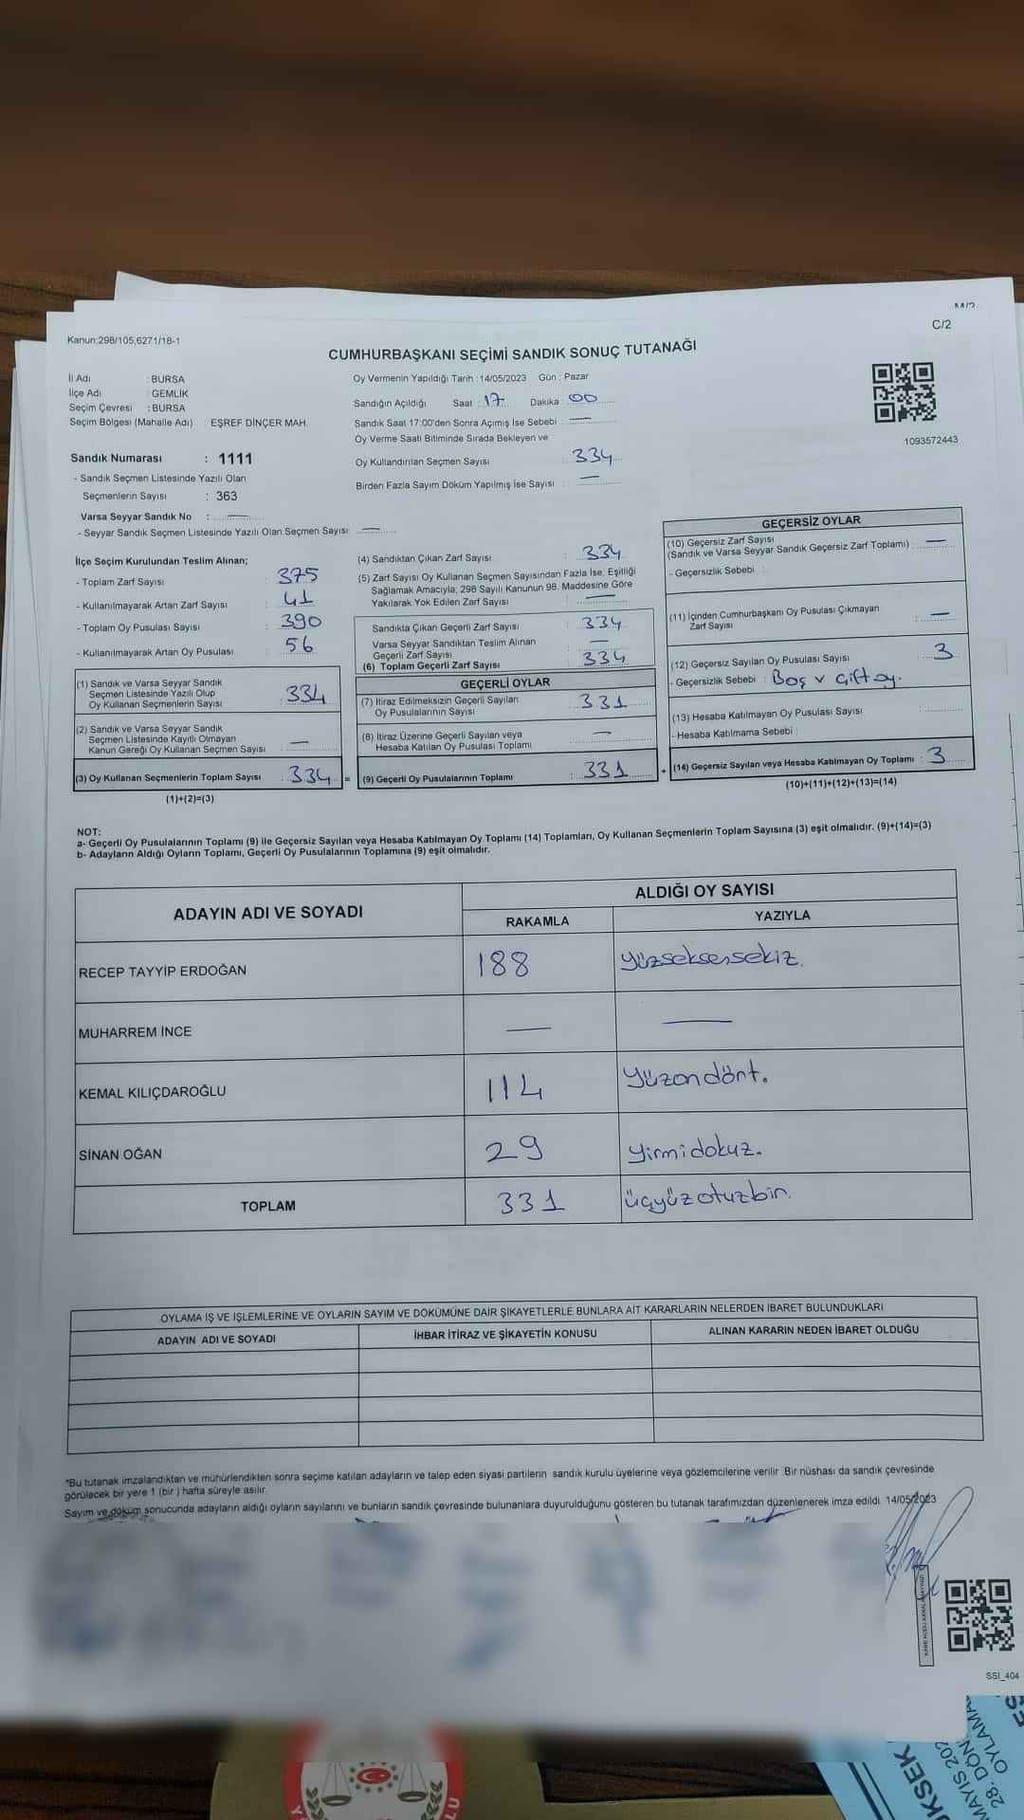 M/2
C/2
Kanun:298/105,6271/18-1
CUMHURBAŞKANI SEÇİMİ SANDIK SONUÇ TUTANAĞI
İl Adı : BURSA
İlçe Adı : GEMLİK
Seçim Çevresi : BURSA
Seçim Bölgesi (Mahalle Adı) : EŞREF DİNÇER MAH.
Oy Vermenin Yapıldığı Tarih : 14/05/2023 Gün : Pazar
Sandığın Açıldığı Saat : 17 Dakika : 00
Sandık Saat 17:00'den Sonra Açımış İse Sebebi : —
Oy Verme Saati Bitiminde Sırada Bekleyen ve
Oy Kullandırılan Seçmen Sayısı : 334
Birden Fazla Sayım Döküm Yapılmış İse Sayısı : —
1093572443
Sandık Numarası : 1111
- Sandık Seçmen Listesinde Yazılı Olan
Seçmenlerin Sayısı : 363
Varsa Seyyar Sandık No : —
- Seyyar Sandık Seçmen Listesinde Yazılı Olan Seçmen Sayısı : —
İlçe Seçim Kurulundan Teslim Alınan;
- Toplam Zarf Sayısı : 375
- Kullanılmayarak Artan Zarf Sayısı : 41
- Toplam Oy Pusulası Sayısı : 390
- Kullanılmayarak Artan Oy Pusulası : 56
(1) Sandık ve Varsa Seyyar Sandık
Seçmen Listesinde Yazılı Olup
Oy Kullanan Seçmenlerin Sayısı : 334
(2) Sandık ve Varsa Seyyar Sandık
Seçmen Listesinde Kayıtlı Olmayan
Kanun Gereği Oy Kullanan Seçmen Sayısı : —
(3) Oy Kullanan Seçmenlerin Toplam Sayısı : 334 =
(1)+(2)=(3)
(4) Sandıktan Çıkan Zarf Sayısı : 334
(5) Zarf Sayısı Oy Kullanan Seçmen Sayısından Fazla İse, Eşitliği
Sağlamak Amacıyla; 298 Sayılı Kanunun 98. Maddesine Göre
Yakılarak Yok Edilen Zarf Sayısı : —
Sandıkta Çıkan Geçerli Zarf Sayısı : 334
Varsa Seyyar Sandıktan Teslim Alınan
Geçerli Zarf Sayısı : —
(6) Toplam Geçerli Zarf Sayısı : 334
GEÇERLİ OYLAR
(7) İtiraz Edilmeksizin Geçerli Sayılan
Oy Pusulalarının Sayısı : 331
(8) İtiraz Üzerine Geçerli Sayılan veya
Hesaba Katılan Oy Pusulası Toplamı : —
(9) Geçerli Oy Pusulalarının Toplamı : 331 +
GEÇERSİZ OYLAR
(10) Geçersiz Zarf Sayısı
(Sandık ve Varsa Seyyar Sandık Geçersiz Zarf Toplamı) : —
- Geçersizlik Sebebi :
(11) İçinden Cumhurbaşkanı Oy Pusulası Çıkmayan
Zarf Sayısı : —
(12) Geçersiz Sayılan Oy Pusulası Sayısı : 3
- Geçersizlik Sebebi : Boş v çift oy.
(13) Hesaba Katılmayan Oy Pusulası Sayısı :
- Hesaba Katılmama Sebebi :
(14) Geçersiz Sayılan veya Hesaba Katılmayan Oy Toplamı : 3
(10)+(11)+(12)+(13)=(14)
NOT:
a- Geçerli Oy Pusulalarının Toplamı (9) ile Geçersiz Sayılan veya Hesaba Katılmayan Oy Toplamı (14) Toplamları, Oy Kullanan Seçmenlerin Toplam Sayısına (3) eşit olmalıdır. (9)+(14)=(3)
b- Adayların Aldığı Oyların Toplamı, Geçerli Oy Pusulalarının Toplamına (9) eşit olmalıdır.
ADAYIN ADI VE SOYADI ALDIĞI OY SAYISI
RAKAMLA YAZIYLA
RECEP TAYYİP ERDOĞAN 188 yüzseksensekiz.
MUHARREM İNCE — —
KEMAL KILIÇDAROĞLU 114 yüzondört.
SİNAN OĞAN 29 yirmidokuz.
TOPLAM 331 üçyüzotuzbir.
OYLAMA İŞ VE İŞLEMLERİNE VE OYLARIN SAYIM VE DÖKÜMÜNE DAİR ŞİKAYETLERLE BUNLARA AİT KARARLARIN NELERDEN İBARET BULUNDUKLARI
ADAYIN ADI VE SOYADI İHBAR İTİRAZ VE ŞİKAYETİN KONUSU ALINAN KARARIN NEDEN İBARET OLDUĞU
*Bu tutanak imzalandıktan ve mühürlendikten sonra seçime katılan adayların ve talep eden siyasi partilerin sandık kurulu üyelerine veya gözlemcilerine verilir. Bir nüshası da sandık çevresinde
görülecek bir yere 1 (bir) hafta süreyle asılır.
Sayım ve döküm sonucunda adayların aldığı oyların sayılarını ve bunların sandık çevresinde bulunanlara duyurulduğunu gösteren bu tutanak tarafımızdan düzenlenerek imza edildi. 14/05/2023
SSI_404
28. DÖN
OYLAMA